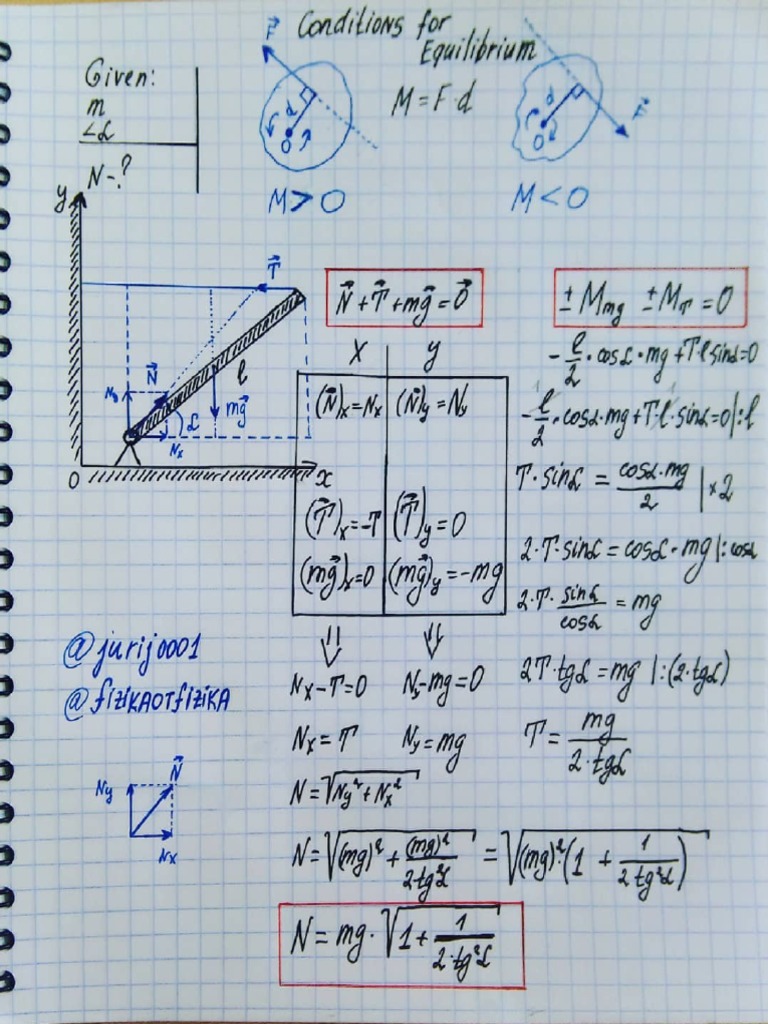 Conditions for
Equilibrium
Given:
m
∠α
N-?
F⃗
d
O
M > O
M = F·d
d
O
F⃗
M < O
y
T⃗
N⃗
Ny
l
α
mg⃗
Nx
O
x
N⃗ + T⃗ + mg⃗ = O⃗
x y
(N⃗)x = Nx (N⃗)y = Ny
(T⃗)x = -T (T⃗)y = 0
(mg⃗)x = 0 (mg⃗)y = -mg
⇓ ⇓
Nx - T = 0 Ny - mg = 0
Nx = T Ny = mg
N = √(Ny² + Nx²)
N = √((mg)² + (mg)²/2tg²α) = √((mg)²·(1 + 1/2tg²α))
N = mg·√(1 + 1/2·tg²α)
± Mmg ± MT = 0
-l/2·cosα·mg + T·l·sinα = 0
-l/2·cosα·mg + T·l·sinα = 0 |:l
T·sinα = cosα·mg/2 | ×2
2·T·sinα = cosα·mg |:cosα
2·T·sinα/cosα = mg
2T·tgα = mg |:(2·tgα)
T = mg/2·tgα
@jurij0001
@fizikaotfizika
Ny
N⃗
Nx